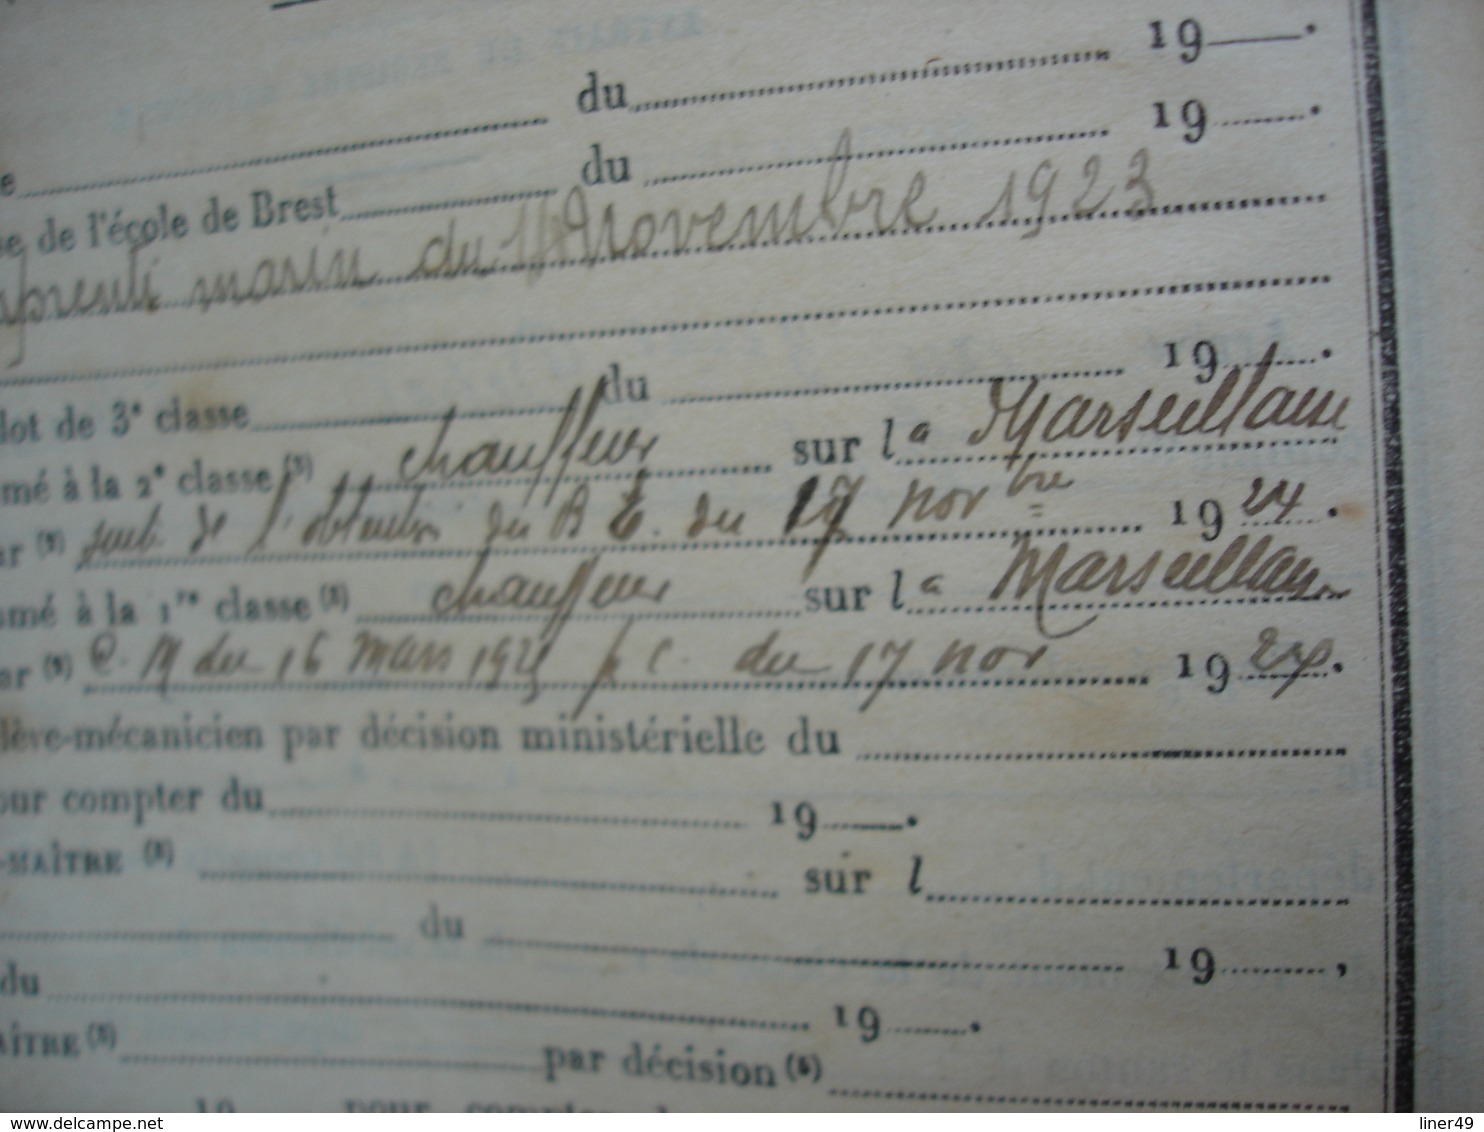 du 19 .
e
se de l'école de Brest du 19 .
apprenti marin du 14 Novembre 1923
lot de 3e classe du 19 .
mé à la 2e classe (3) chauffeur sur la Marseillaise
ar (9) suite de l'obtention du B E. du 17 novbre 1924.
mé à la 1re classe (8) chauffeur sur la Marseillaise
ar (9) C. M du 16 mars 1925 p c. du 17 nov 1924.
lève-mécanicien par décision ministérielle du
our compter du 19 .
-MAÎTRE (8) sur l
du 19 ,
du 19 .
AÎTRE (8) par décision (6)
19 pour compter d
www.delcampe.net liner49